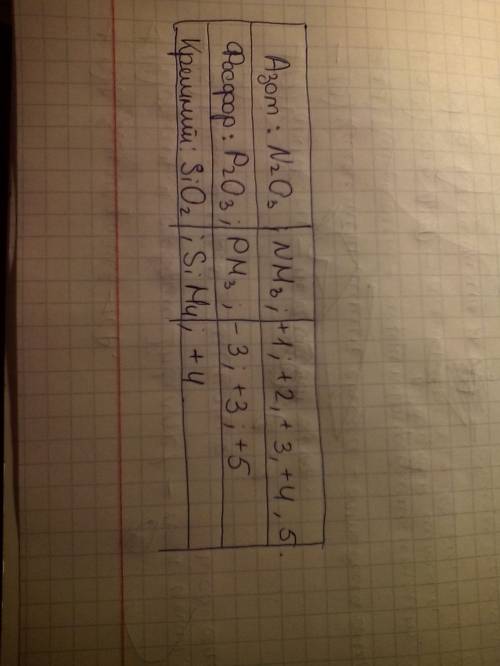 Азот: N2O3; NH3; +1; +2, +3, +4, 5.
Фосфор: P2O3; PH3; -3; +3; +5
Кремний: SiO2; SiH4; +4